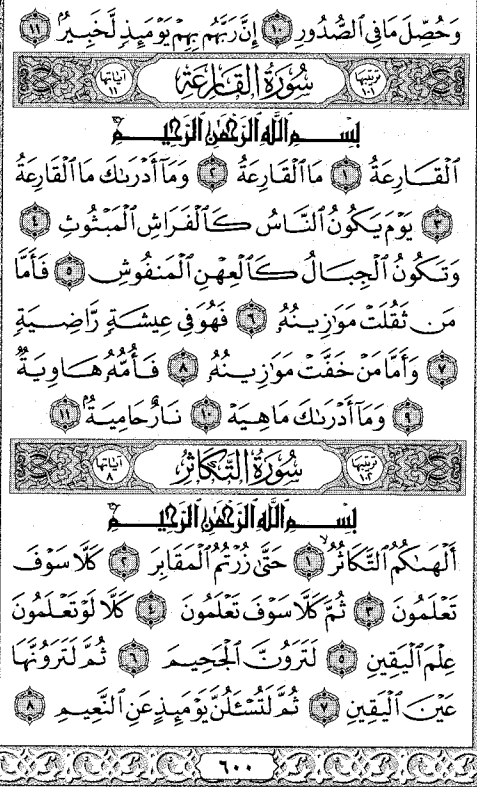 وَحُصِّلَ مَا فِي ٱلصُّدُورِ ١٠ إِنَّ رَبَّهُم بِهِمۡ يَوۡمَئِذٖ لَّخَبِيرُۢ ١١
ترتيبها ١٠١ سُورَةُ القَارِعَةِ آياتها ١١
بِسۡمِ ٱللَّهِ ٱلرَّحۡمَٰنِ ٱلرَّحِيمِ
ٱلۡقَارِعَةُ ١ مَا ٱلۡقَارِعَةُ ٢ وَمَآ أَدۡرَىٰكَ مَا ٱلۡقَارِعَةُ
٣ يَوۡمَ يَكُونُ ٱلنَّاسُ كَٱلۡفَرَاشِ ٱلۡمَبۡثُوثِ ٤
وَتَكُونُ ٱلۡجِبَالُ كَٱلۡعِهۡنِ ٱلۡمَنفُوشِ ٥ فَأَمَّا
مَن ثَقُلَتۡ مَوَٰزِينُهُۥ ٦ فَهُوَ فِي عِيشَةٖ رَّاضِيَةٖ
٧ وَأَمَّا مَنۡ خَفَّتۡ مَوَٰزِينُهُۥ ٨ فَأُمُّهُۥ هَاوِيَةٞ
٩ وَمَآ أَدۡرَىٰكَ مَا هِيَهۡ ١٠ نَارٌ حَامِيَةُۢ ١١
ترتيبها ١٠٢ سُورَةُ التَّكَاثُرِ آياتها ٨
بِسۡمِ ٱللَّهِ ٱلرَّحۡمَٰنِ ٱلرَّحِيمِ
أَلۡهَىٰكُمُ ٱلتَّكَاثُرُ ١ حَتَّىٰ زُرۡتُمُ ٱلۡمَقَابِرَ ٢ كَلَّا سَوۡفَ
تَعۡلَمُونَ ٣ ثُمَّ كَلَّا سَوۡفَ تَعۡلَمُونَ ٤ كَلَّا لَوۡ تَعۡلَمُونَ
عِلۡمَ ٱلۡيَقِينِ ٥ لَتَرَوُنَّ ٱلۡجَحِيمَ ٦ ثُمَّ لَتَرَوُنَّهَا
عَيۡنَ ٱلۡيَقِينِ ٧ ثُمَّ لَتُسۡـَٔلُنَّ يَوۡمَئِذٍ عَنِ ٱلنَّعِيمِ ٨
٦٠٠